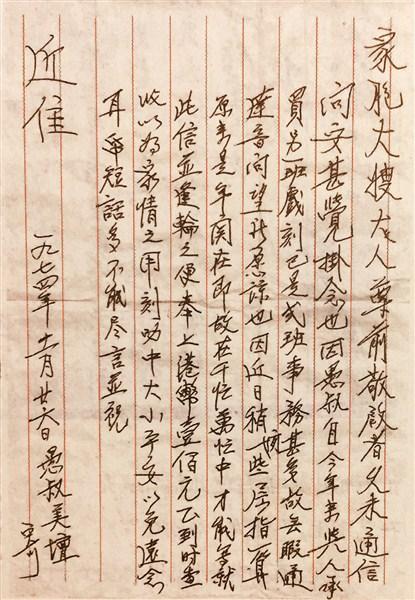 家胞大嫂大人尊前敬啟者久未通信
问安甚覺掛念也因愚叔自今年来與人承
買另一班戲刻已是成班事務甚多故無暇通
達音问望祈原諒也因近日稍閑些屈指一算
原来是年関在即故在千忙萬忙中才能草就
此信並逢輪之便奉上港幣壹佰元正到时查
收以为家情之用刻叻中大小平安以免遠念
耳帋短話多不能尽言並祝
近佳
一九七四年十一月廿六日愚叔美壇